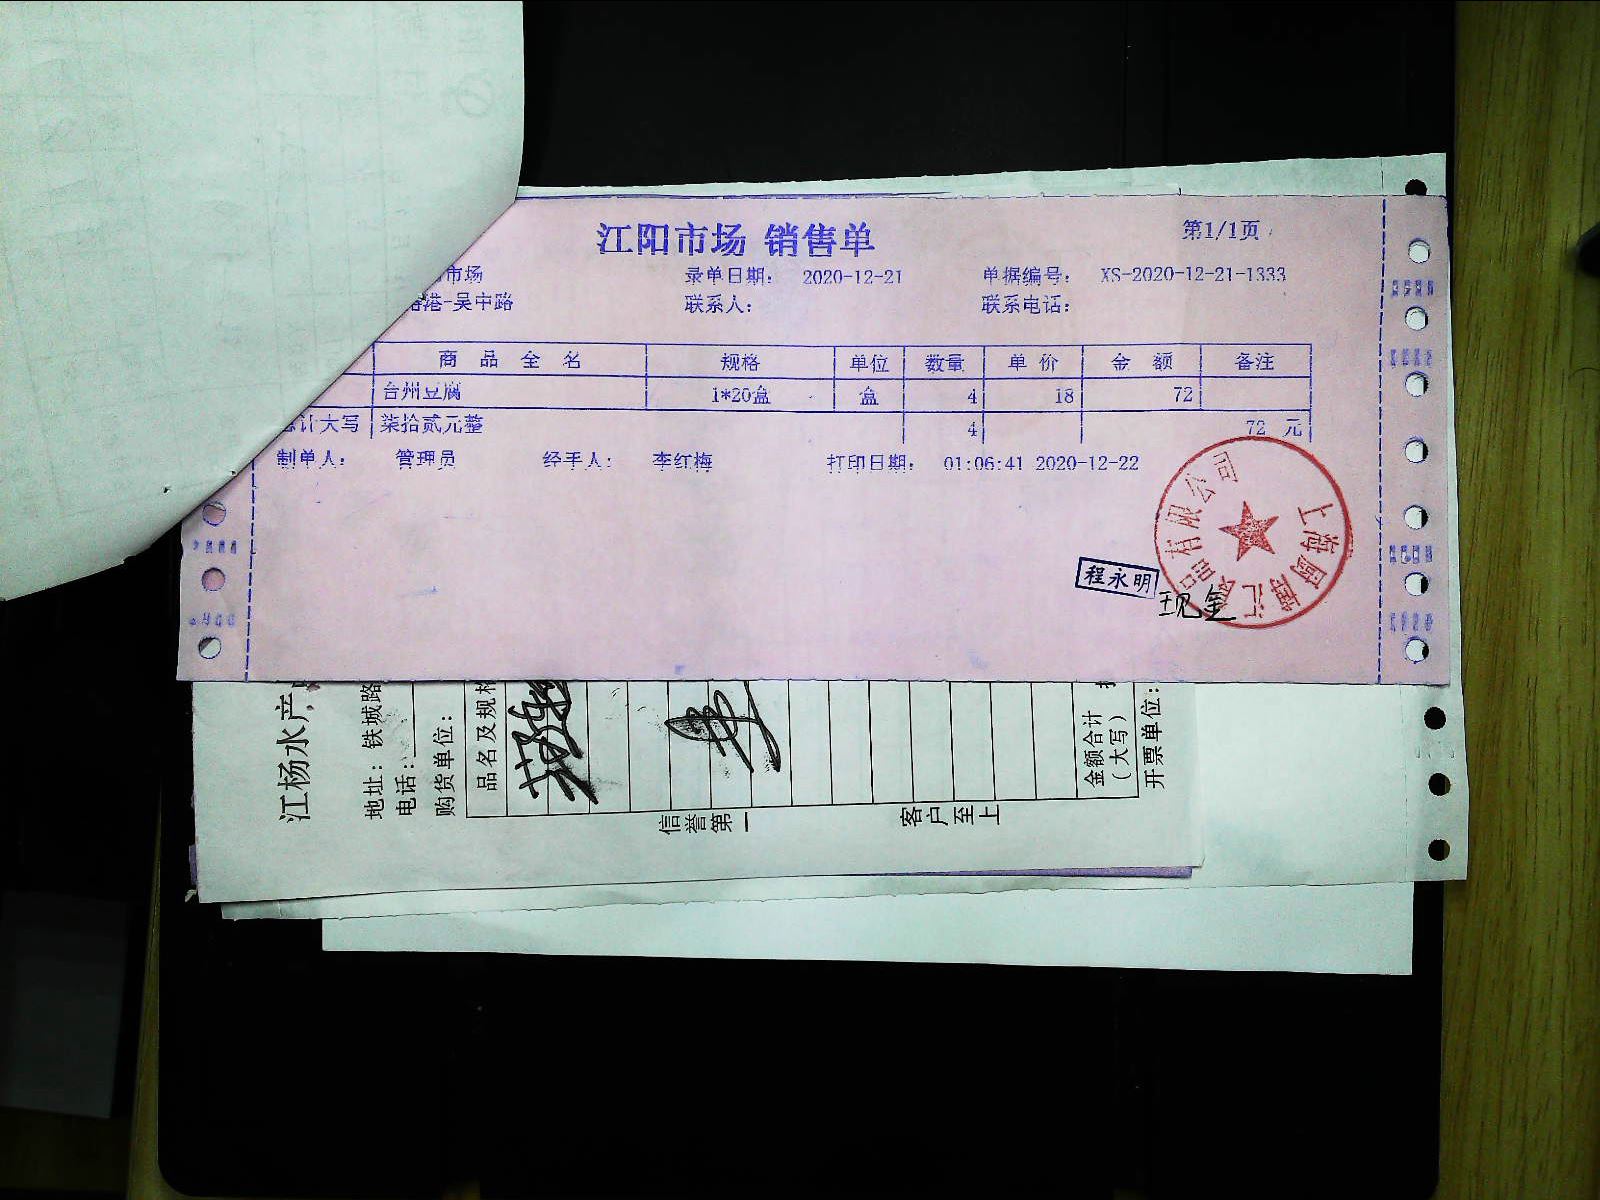 江阳市场 销售单
第1/1页
市场 录单日期： 2020-12-21 单据编号： XS-2020-12-21-1333
港-吴中路 联系人： 联系电话：
商品全名 规格 单位 数量 单价 金额 备注
台州豆腐 1*20盒 盒 4 18 72
计大写 柒拾贰元整 4 72 元
制单人： 管理员 经手人： 李红梅 打印日期： 01:06:41 2020-12-22
程永明
现金
上海 汇 品有限公司
江杨水产
地址：铁城路
电话：
购货单位：
品名及规格
信誉第一
客户至上
金额合计
（大写）
开票单位：